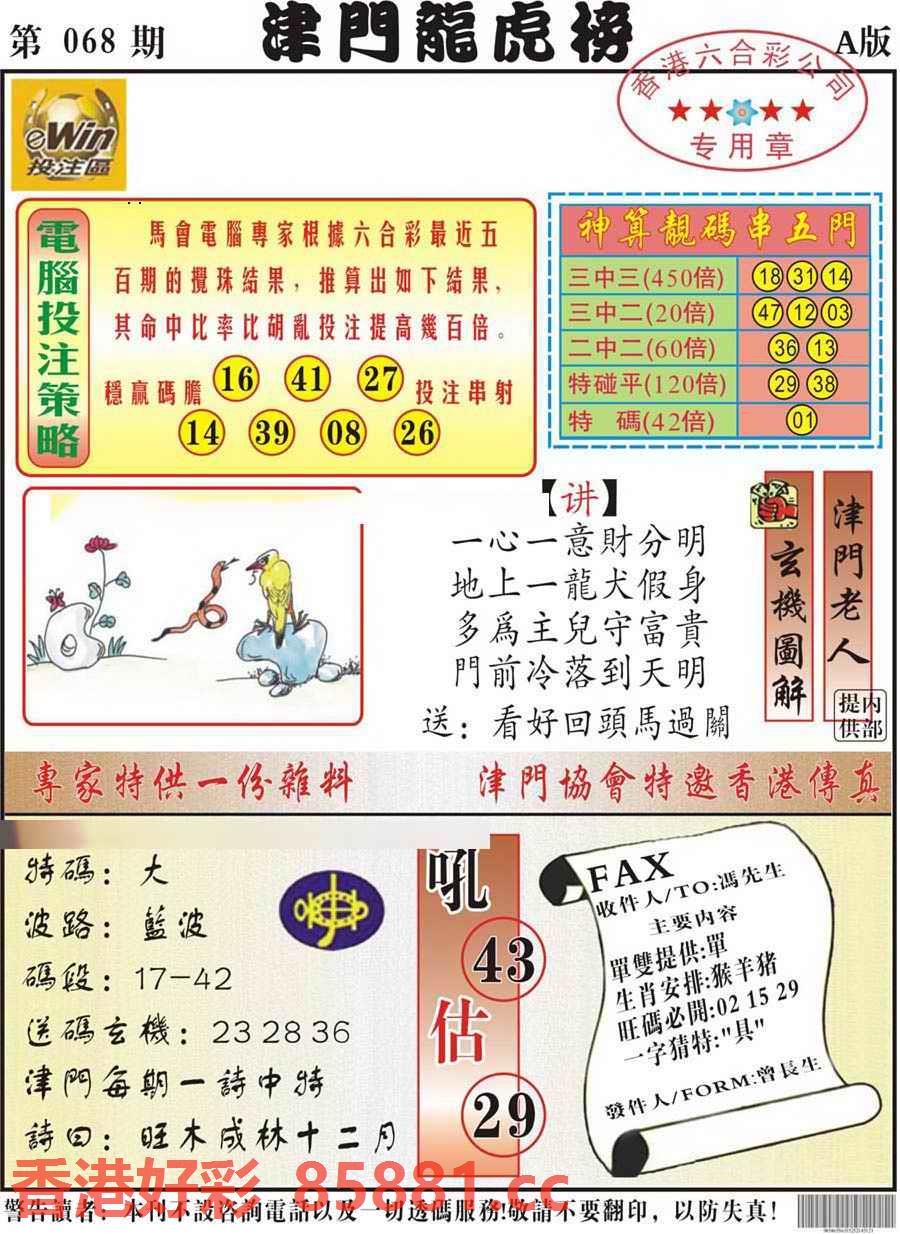 第 068 期
津門龍虎榜
A版
香港六合彩公司
专用章
eWin
投注區
電腦投注策略
馬會電腦專家根據六合彩最近五
百期的攪珠結果，推算出如下結果，
其命中比率比胡亂投注提高幾百倍。
穩贏碼膽 16 41 27 投注串射
14 39 08 26
神算靚碼串五門
三中三(450倍) 18 31 14
三中二(20倍) 47 12 03
二中二(60倍) 36 13
特碰平(120倍) 29 38
特 碼(42倍) 01
【讲】
一心一意財分明
地上一龍犬假身
多爲主兒守富貴
門前冷落到天明
送：看好回頭馬過關
玄機圖解
津門老人
内部提供
專家特供一份雜料
津門協會特邀香港傳真
特碼：大
波路：藍波
碼段：17-42
送碼玄機：23 28 36
津門每期一詩中特
詩曰：旺木成林十二月
吼
43
估
29
FAX
收件人/TO:馮先生
主要内容
單雙提供:單
生肖安排:猴羊猪
旺碼必開:02 15 29
一字猜特:"具"
發件人/FORM:曾長生
香港好彩 85881.cc
警告讀者：本刊不設咨詢電話以及一切透碼服務!敬請不要翻印，以防失真!